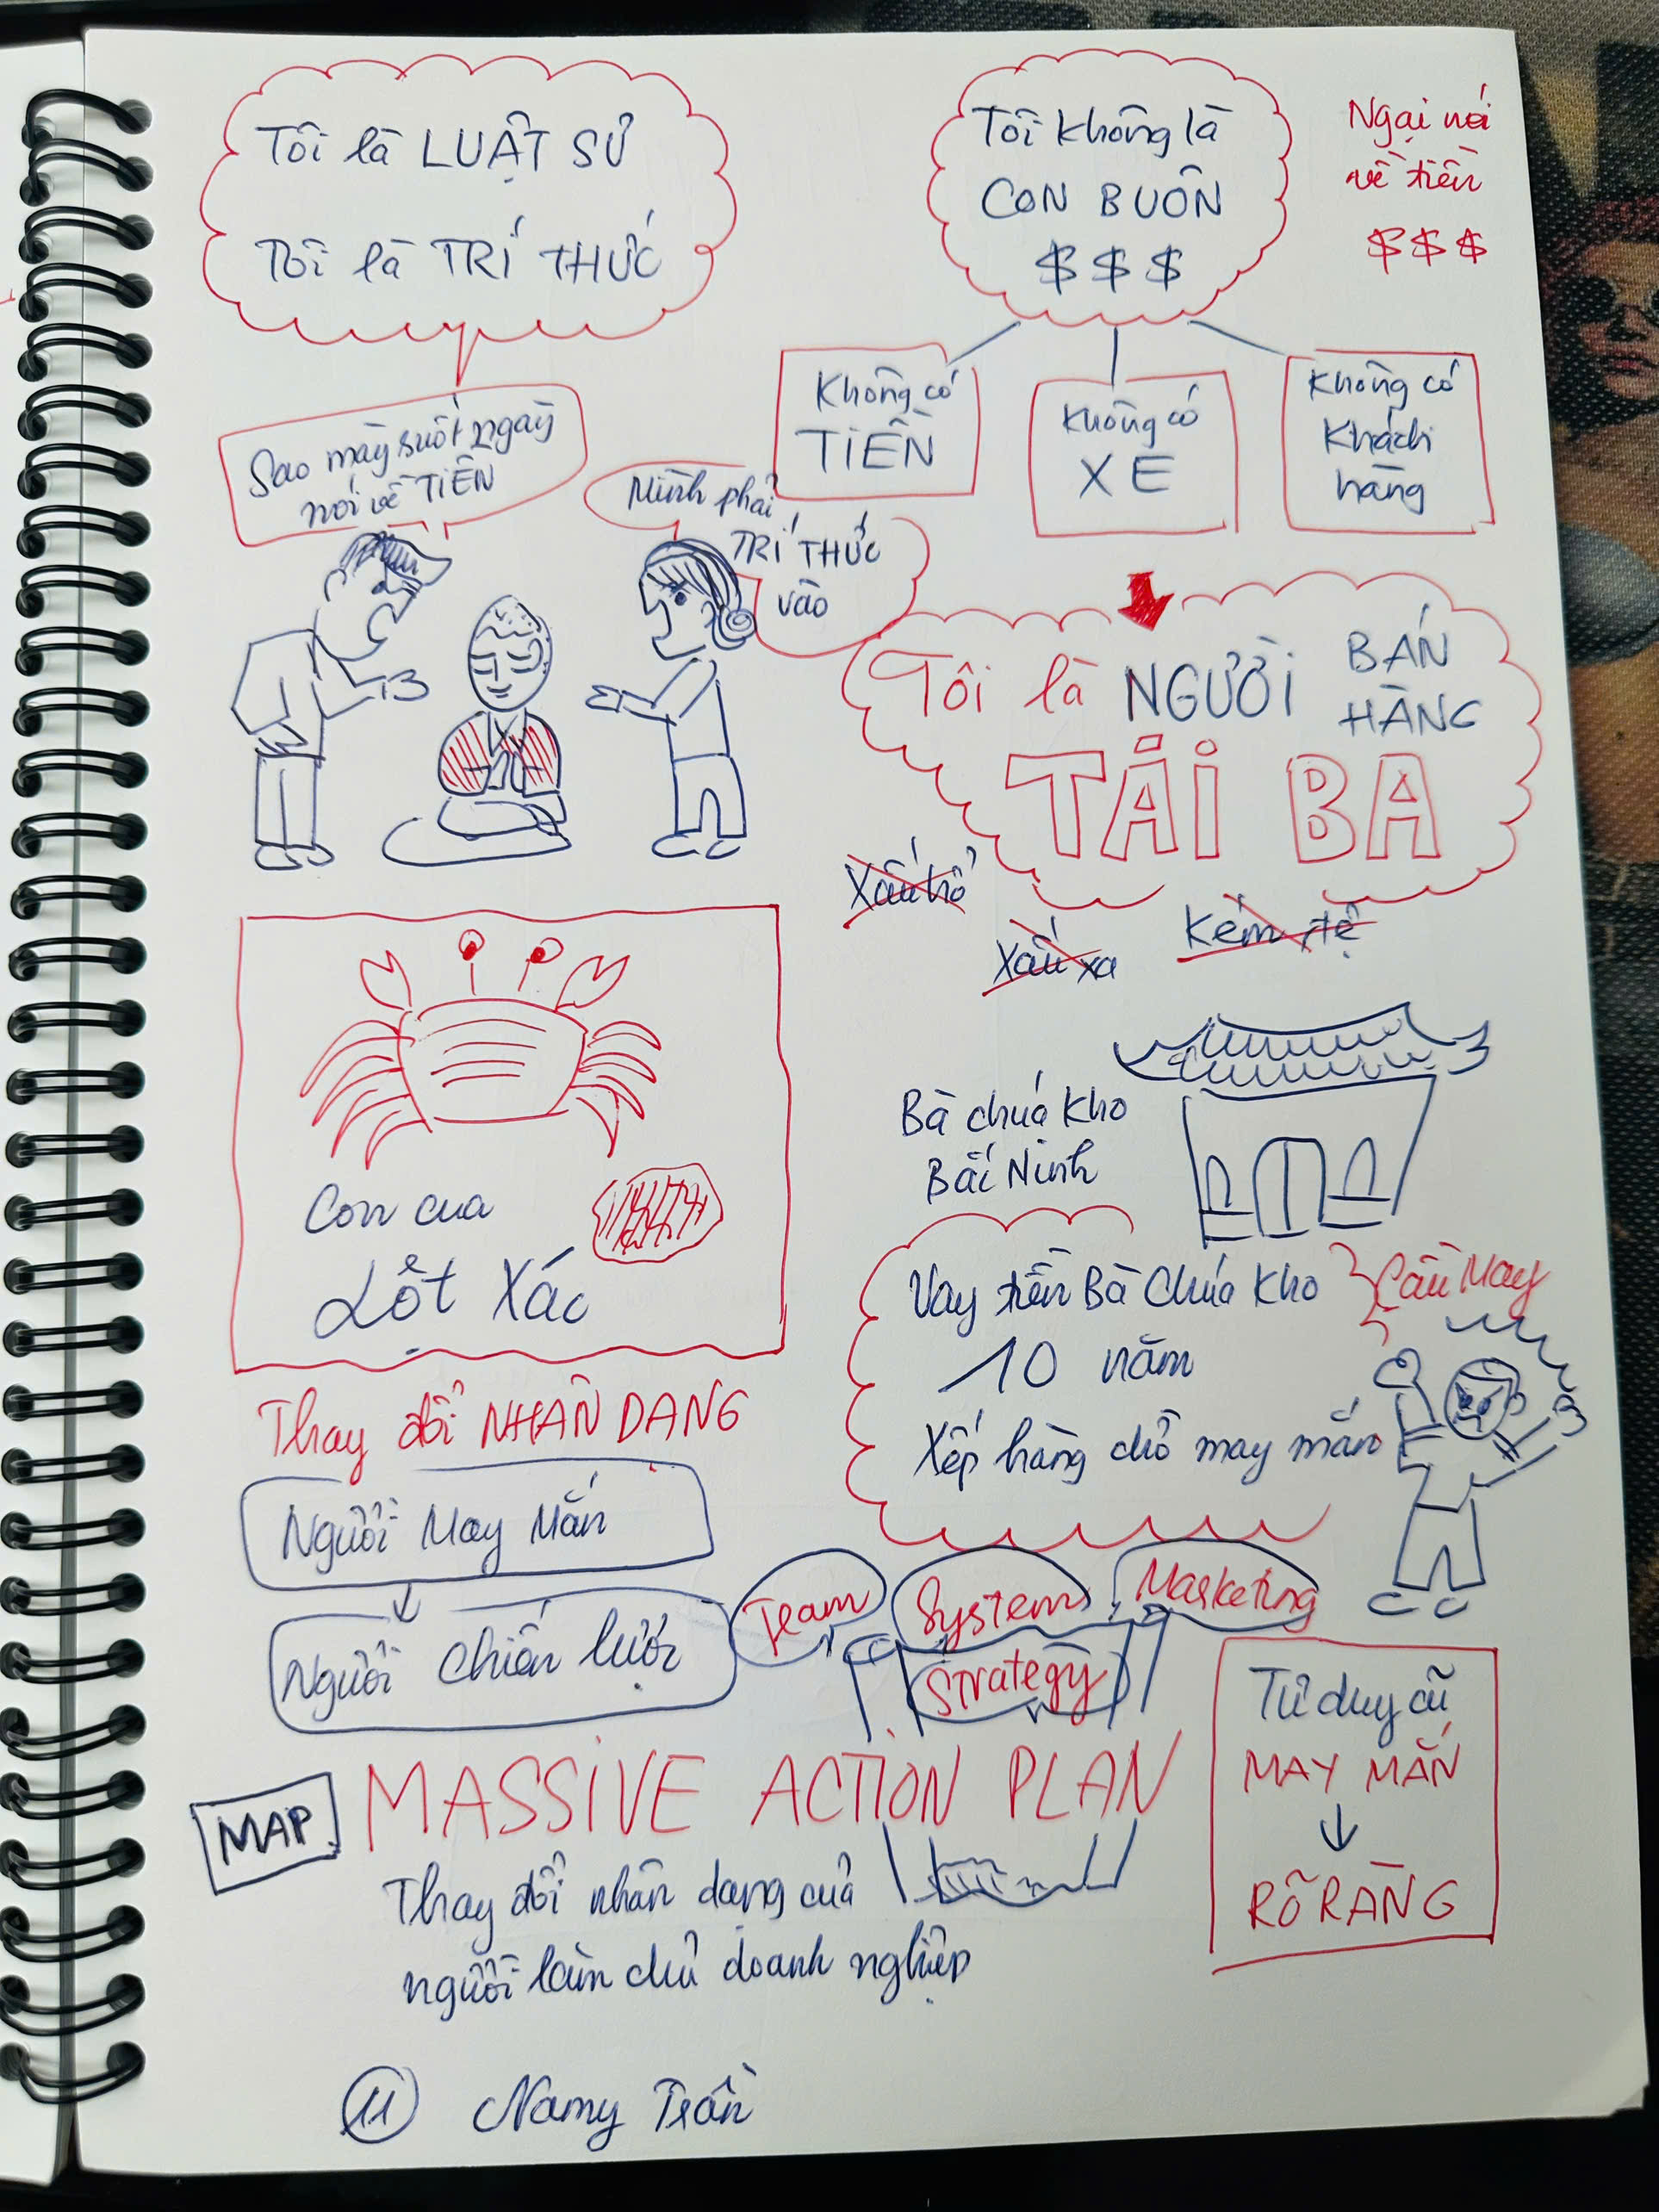 Tôi là LUẬT SƯ
Tôi là TRÍ THỨC
Tôi không là
CON BUÔN
$ $ $
Ngại nói
về tiền
$ $ $
Sao mày suốt ngày
nói về TIỀN
Mình phải
TRÍ THỨC
vào
Không có
TIỀN
Không có
XE
Không có
Khách
hàng
Tôi là NGƯỜI BÁN
HÀNG
TÀI BA
Xấu hổ
Xấu xa
Kém, tệ
Con cua
Lột Xác
Bà chúa Kho
Bắc Ninh
Vay tiền Bà Chúa Kho
10 năm
Xếp hàng chờ may mắn
Cầu May
Thay đổi NHẬN DẠNG
Người May Mắn
↓
Người chiến lược
Team
System
Marketing
Strategy
MAP
MASSIVE ACTION PLAN
Thay đổi nhận dạng của
người làm chủ doanh nghiệp
Tư duy cũ
MAY MẮN
↓
RÕ RÀNG
11 Namy Trần